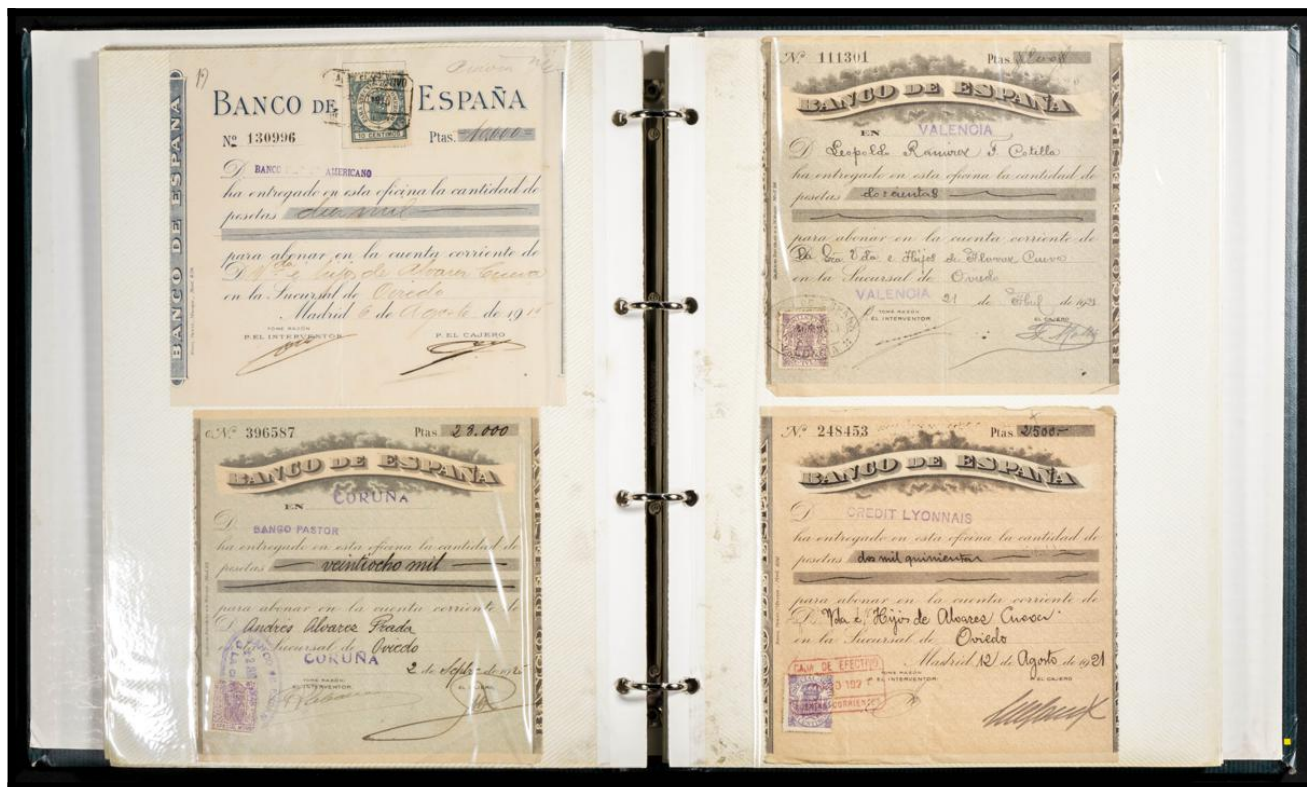 BANCO DE ESPAÑA
BANCO DE ESPAÑA
10 CENTIMOS
Nº 130996
Ptas. =10,000=
D. BANCO AMERICANO
ha entregado en esta oficina la cantidad de
pesetas diez mil
para abonar en la cuenta corriente de
D. Vda e hijos de Alvarez Cueva
en la Sucursal de Oviedo
Madrid 6 de Agosto de 191
TOMÉ RAZÓN
P. EL INTERVENTOR
P. EL CAJERO
Nº 396587
Ptas. 28.000
BANCO DE ESPAÑA
EN CORUÑA
D.
BANCO PASTOR
ha entregado en esta oficina la cantidad de
pesetas veintiocho mil
para abonar en la cuenta corriente de
D. Andrés Alvarez Prada
en la Sucursal de Oviedo
CORUÑA
2 de Sepbre de 192
TOMÉ RAZÓN:
EL INTERVENTOR
EL CAJERO
Nº 111301
Ptas.
BANCO DE ESPAÑA
EN VALENCIA
D. Leopoldo Ramirez F. Cotilla
ha entregado en esta oficina la cantidad de
pesetas doscientas
para abonar en la cuenta corriente de
Vda e Hijos de Alvarez Cueva
en la Sucursal de Oviedo
VALENCIA 21 de Abril de 192
TOMÉ RAZÓN
EL INTERVENTOR
EL CAJERO
Nº 248453
Ptas. 2500-
BANCO DE ESPAÑA
D. CREDIT LYONNAIS
ha entregado en esta oficina la cantidad de
pesetas dos mil quinientas
para abonar en la cuenta corriente de
D. Vda é Hijos de Alvarez Cueva
en la Sucursal de Oviedo
Madrid 12 de Agosto de 1921
CAJA DE EFECTIVO
TOMÉ RAZÓN
P. EL INTERVENTOR
P. EL CAJERO
CUENTAS CORRIENTES